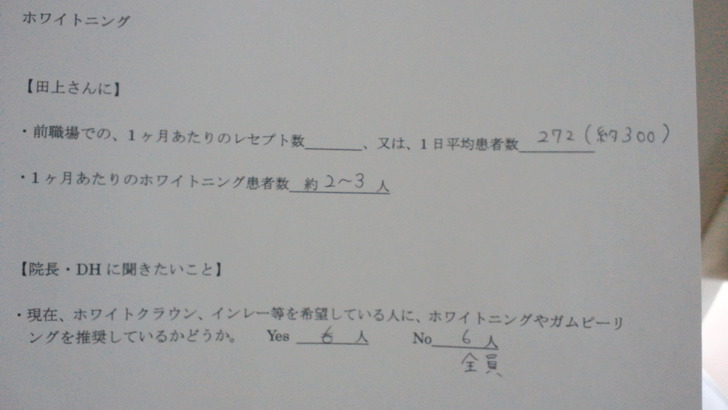 ホワイトニング
【田上さんに】
・前職場での、1ヶ月あたりのレセプト数______、又は、1日平均患者数 272(約300)
・1ヶ月あたりのホワイトニング患者数 約 2〜3 人
【院長・DHに聞きたいこと】
・現在、ホワイトクラウン、インレー等を希望している人に、ホワイトニングやガムピーリ
ングを推奨しているかどうか。 Yes 人 No 6 人
全員